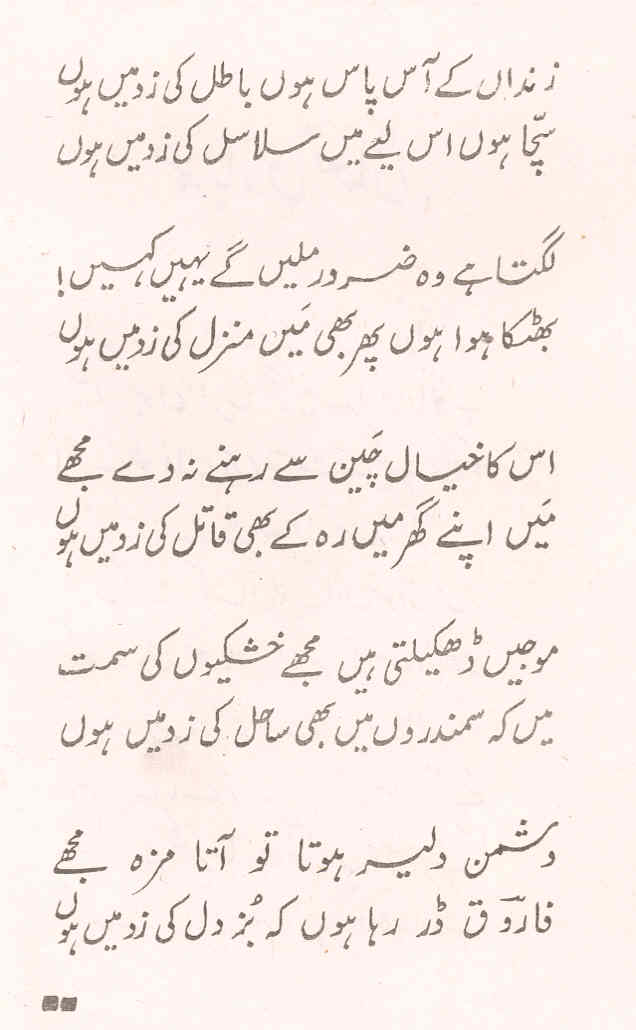 زنداں کے آس پاس ہوں باطل کی زد میں ہوں
سچّا ہوں اس لیے میں سلاسل کی زد میں ہوں
لگتا ہے وہ ضرور ملیں گے یہیں کہیں!
بھٹکا ہوا ہوں پھر بھی مَیں منزل کی زد میں ہوں
اس کا خیال چَین سے رہنے نہ دے مجھے
مَیں اپنے گھر میں رہ کے بھی قاتل کی زد میں ہوں
موجیں ڈھکیلتی ہیں مجھے خشکیوں کی سمت
میں کہ سمندروں میں بھی ساحل کی زد میں ہوں
دشمن دلیر ہوتا تو آتا مزہ مجھے
فاروؔق ڈر رہا ہوں کہ بُزدل کی زد میں ہوں